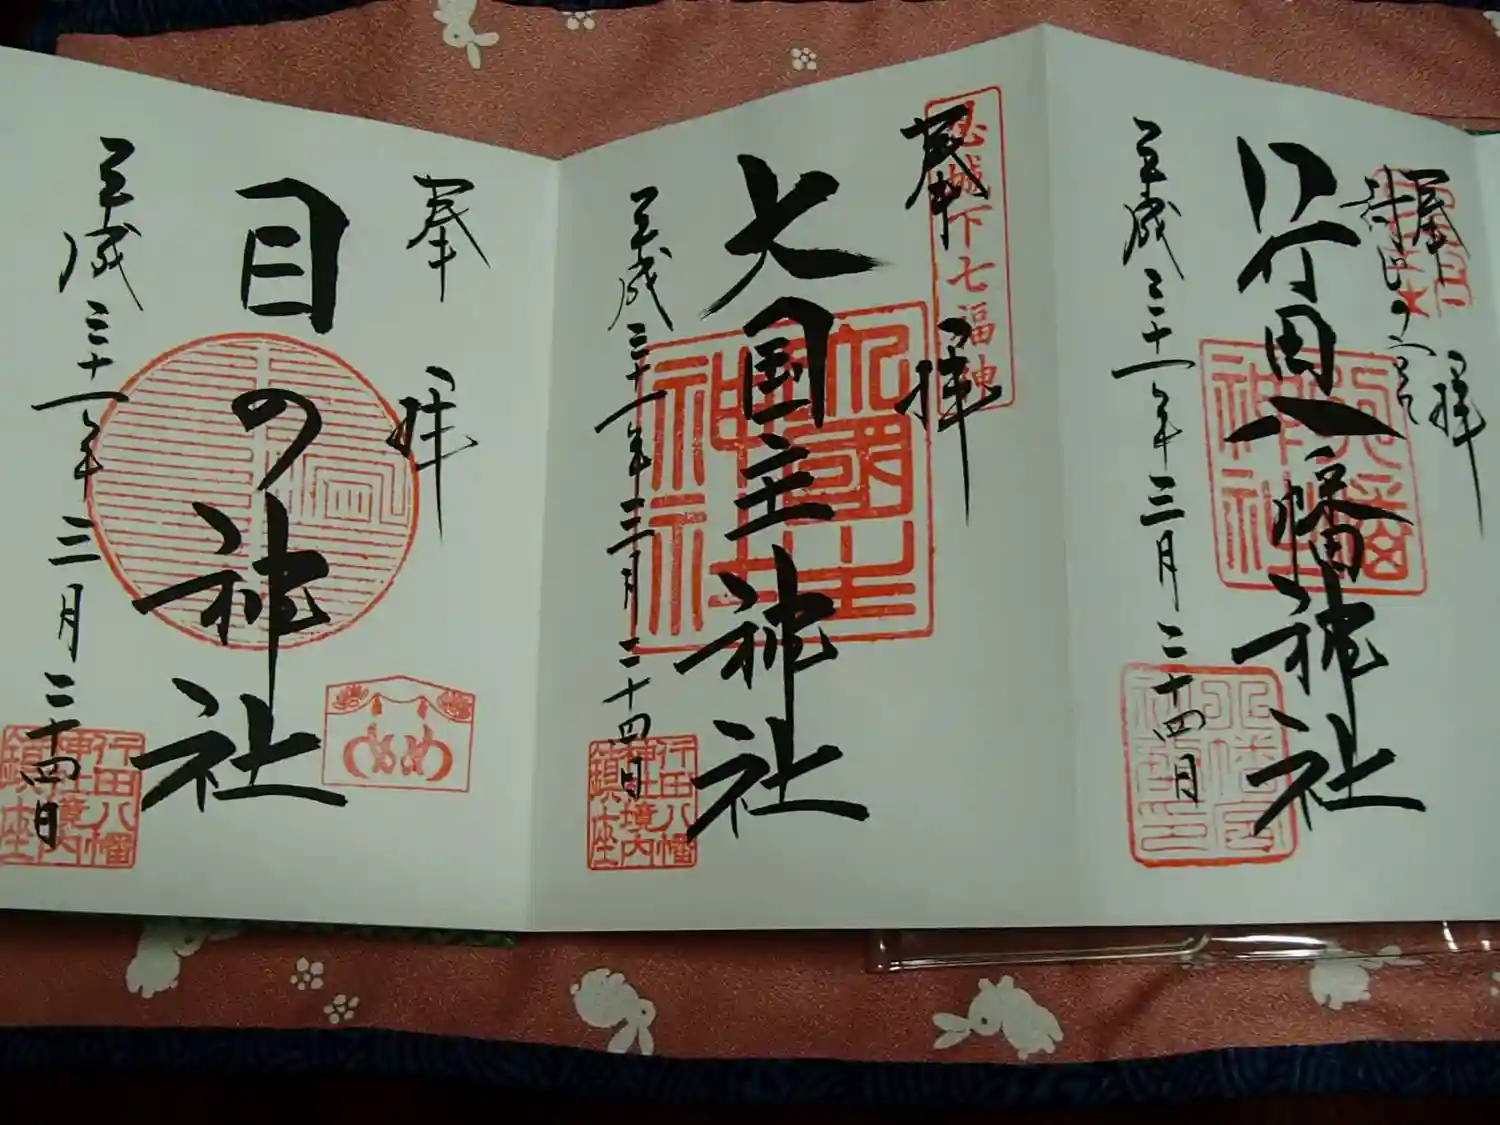 奉拝
封じの宮
行田八幡神社
平成三十一年三月二十四日
忍城下七福神
奉拝
大国主神社
大國主神社
平成三十一年三月二十四日
行田八幡神社境内鎮座
奉拝
目の神社
めめ
平成三十一年三月二十四日
行田八幡神社境内鎮座